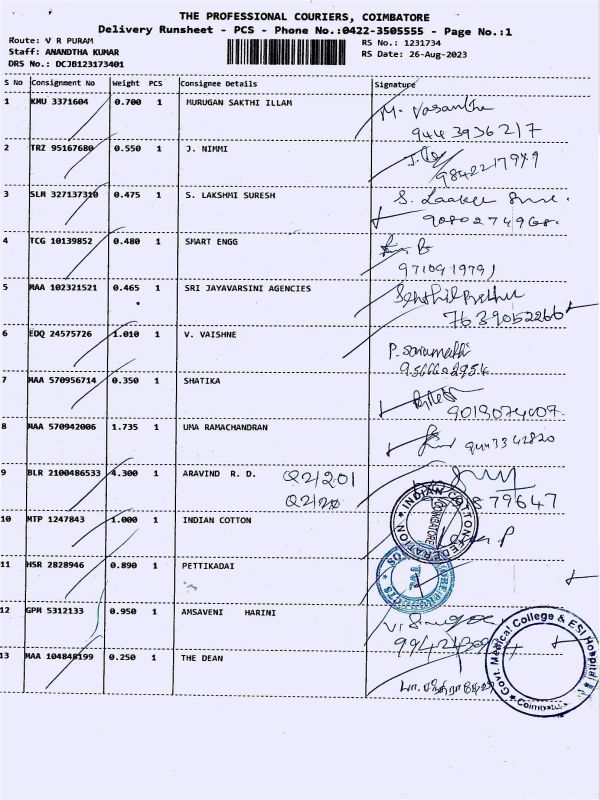 THE PROFESSIONAL COURIERS, COIMBATORE
Delivery Runsheet - PCS - Phone No.:0422-3505555 - Page No.:1
Route: V R PURAM
RS No.: 1231734
Staff: ANANDTHA KUMAR
RS Date: 26-Aug-2023
DRS No.: DCJB123173401
S No Consignment No Weight PCS Consignee Details Signature
1 KMU 3371604 0.700 1 MURUGAN SAKTHI ILLAM M. Vasantha
9443936217
2 TRZ 95167680 0.550 1 J. NIMMI
9842217949
3 SLM 327137310 0.475 1 S. LAKSHMI SURESH S.
9080274968.
4 TCG 10139852 0.480 1 SMART ENGG
9710919791
5 MAA 102321521 0.465 1 SRI JAYAVARSINI AGENCIES
7639052266
6 EDQ 24575726 1.010 1 V. VAISHNE P. Sarumathi
7 MAA 570956714 0.350 1 SHATIKA
8 MAA 570942006 1.735 1 UMA RAMACHANDRAN
9 BLR 2100486533 4.300 1 ARAVIND R. D. Q2/201
Q2/20 79647
10 MTP 1247843 1.000 1 INDIAN COTTON
INDIAN COTTON FEDERATION
COIMBATORE
11 HSR 2828946 0.890 1 PETTIKADAI
12 GPM 5312133 0.950 1 AMSAVENI HARINI
13 MAA 104848199 0.250 1 THE DEAN
Govt. Medical College & ESI Hospital